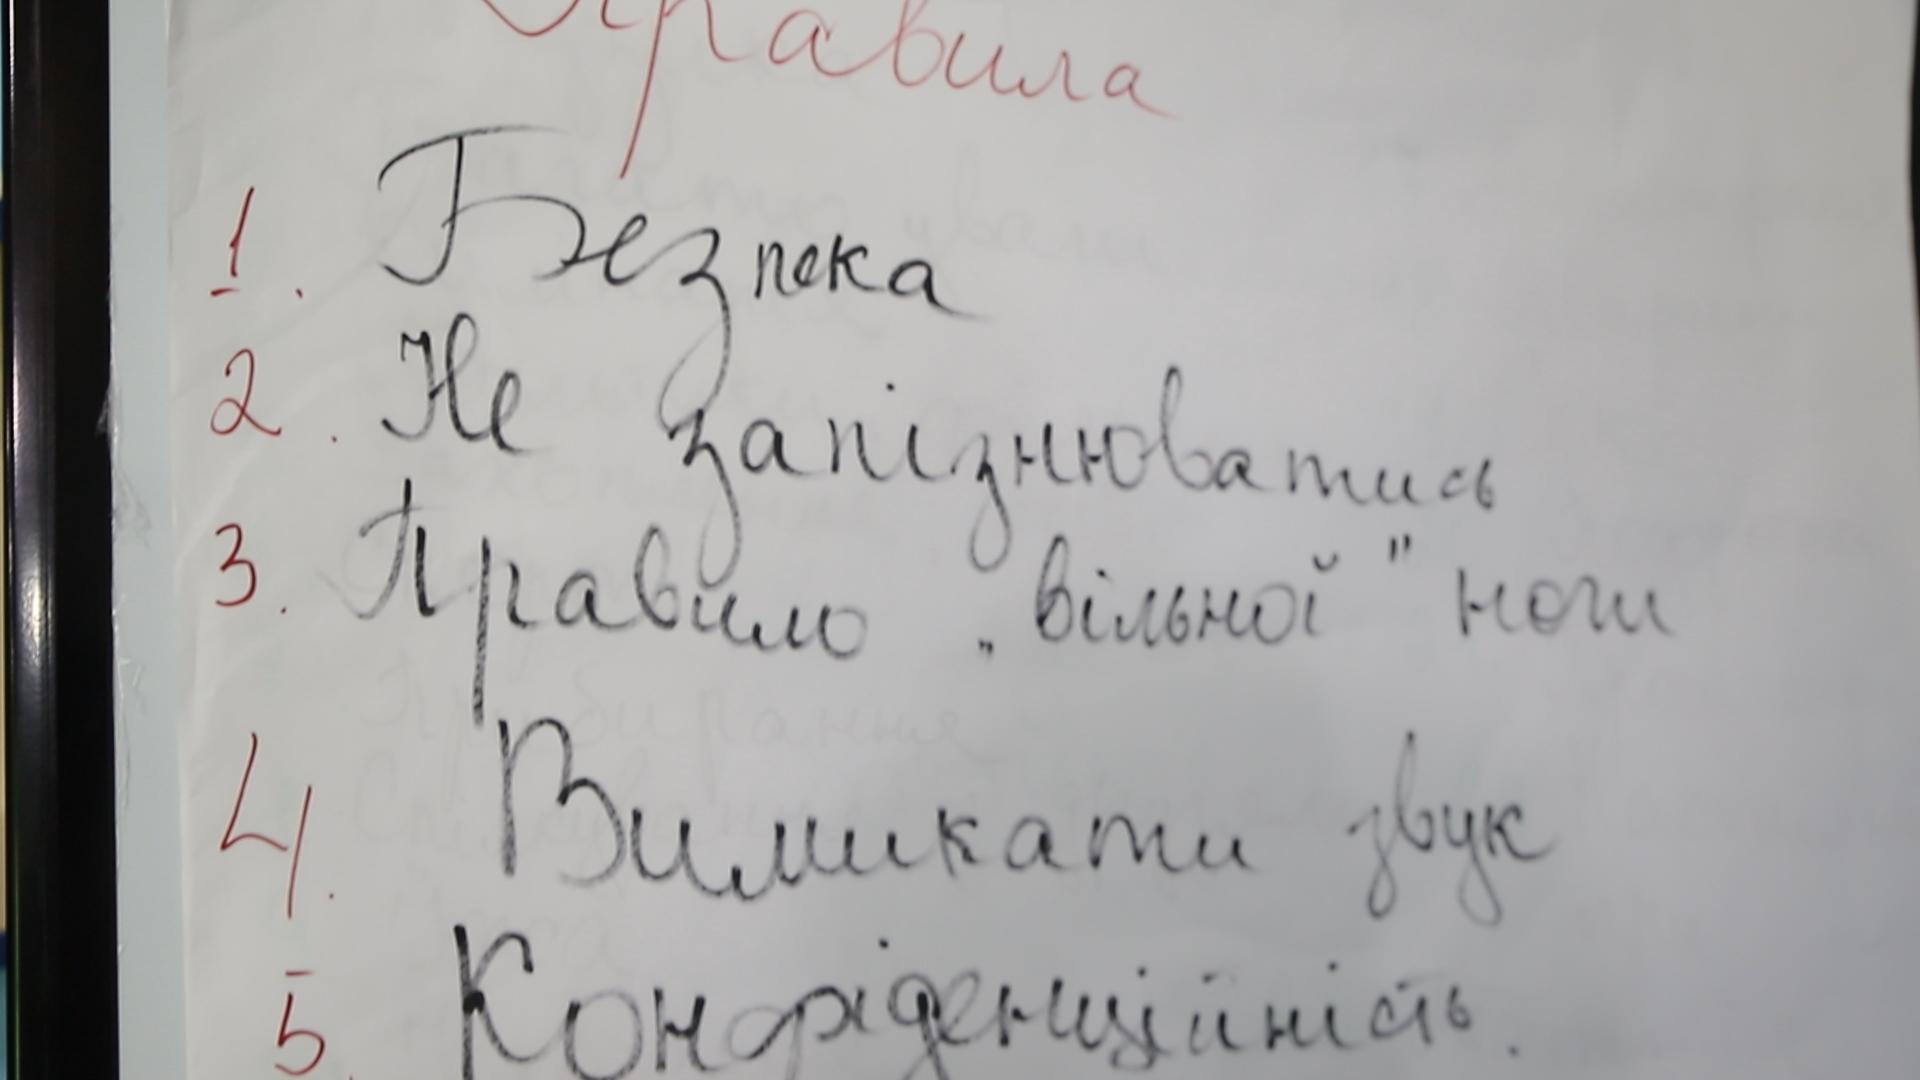 Правила
1. Безпека
2. Не запізнюватись
3. Правило „вільної" ноги
4. Вимикати звук
5. Конфіденційність.